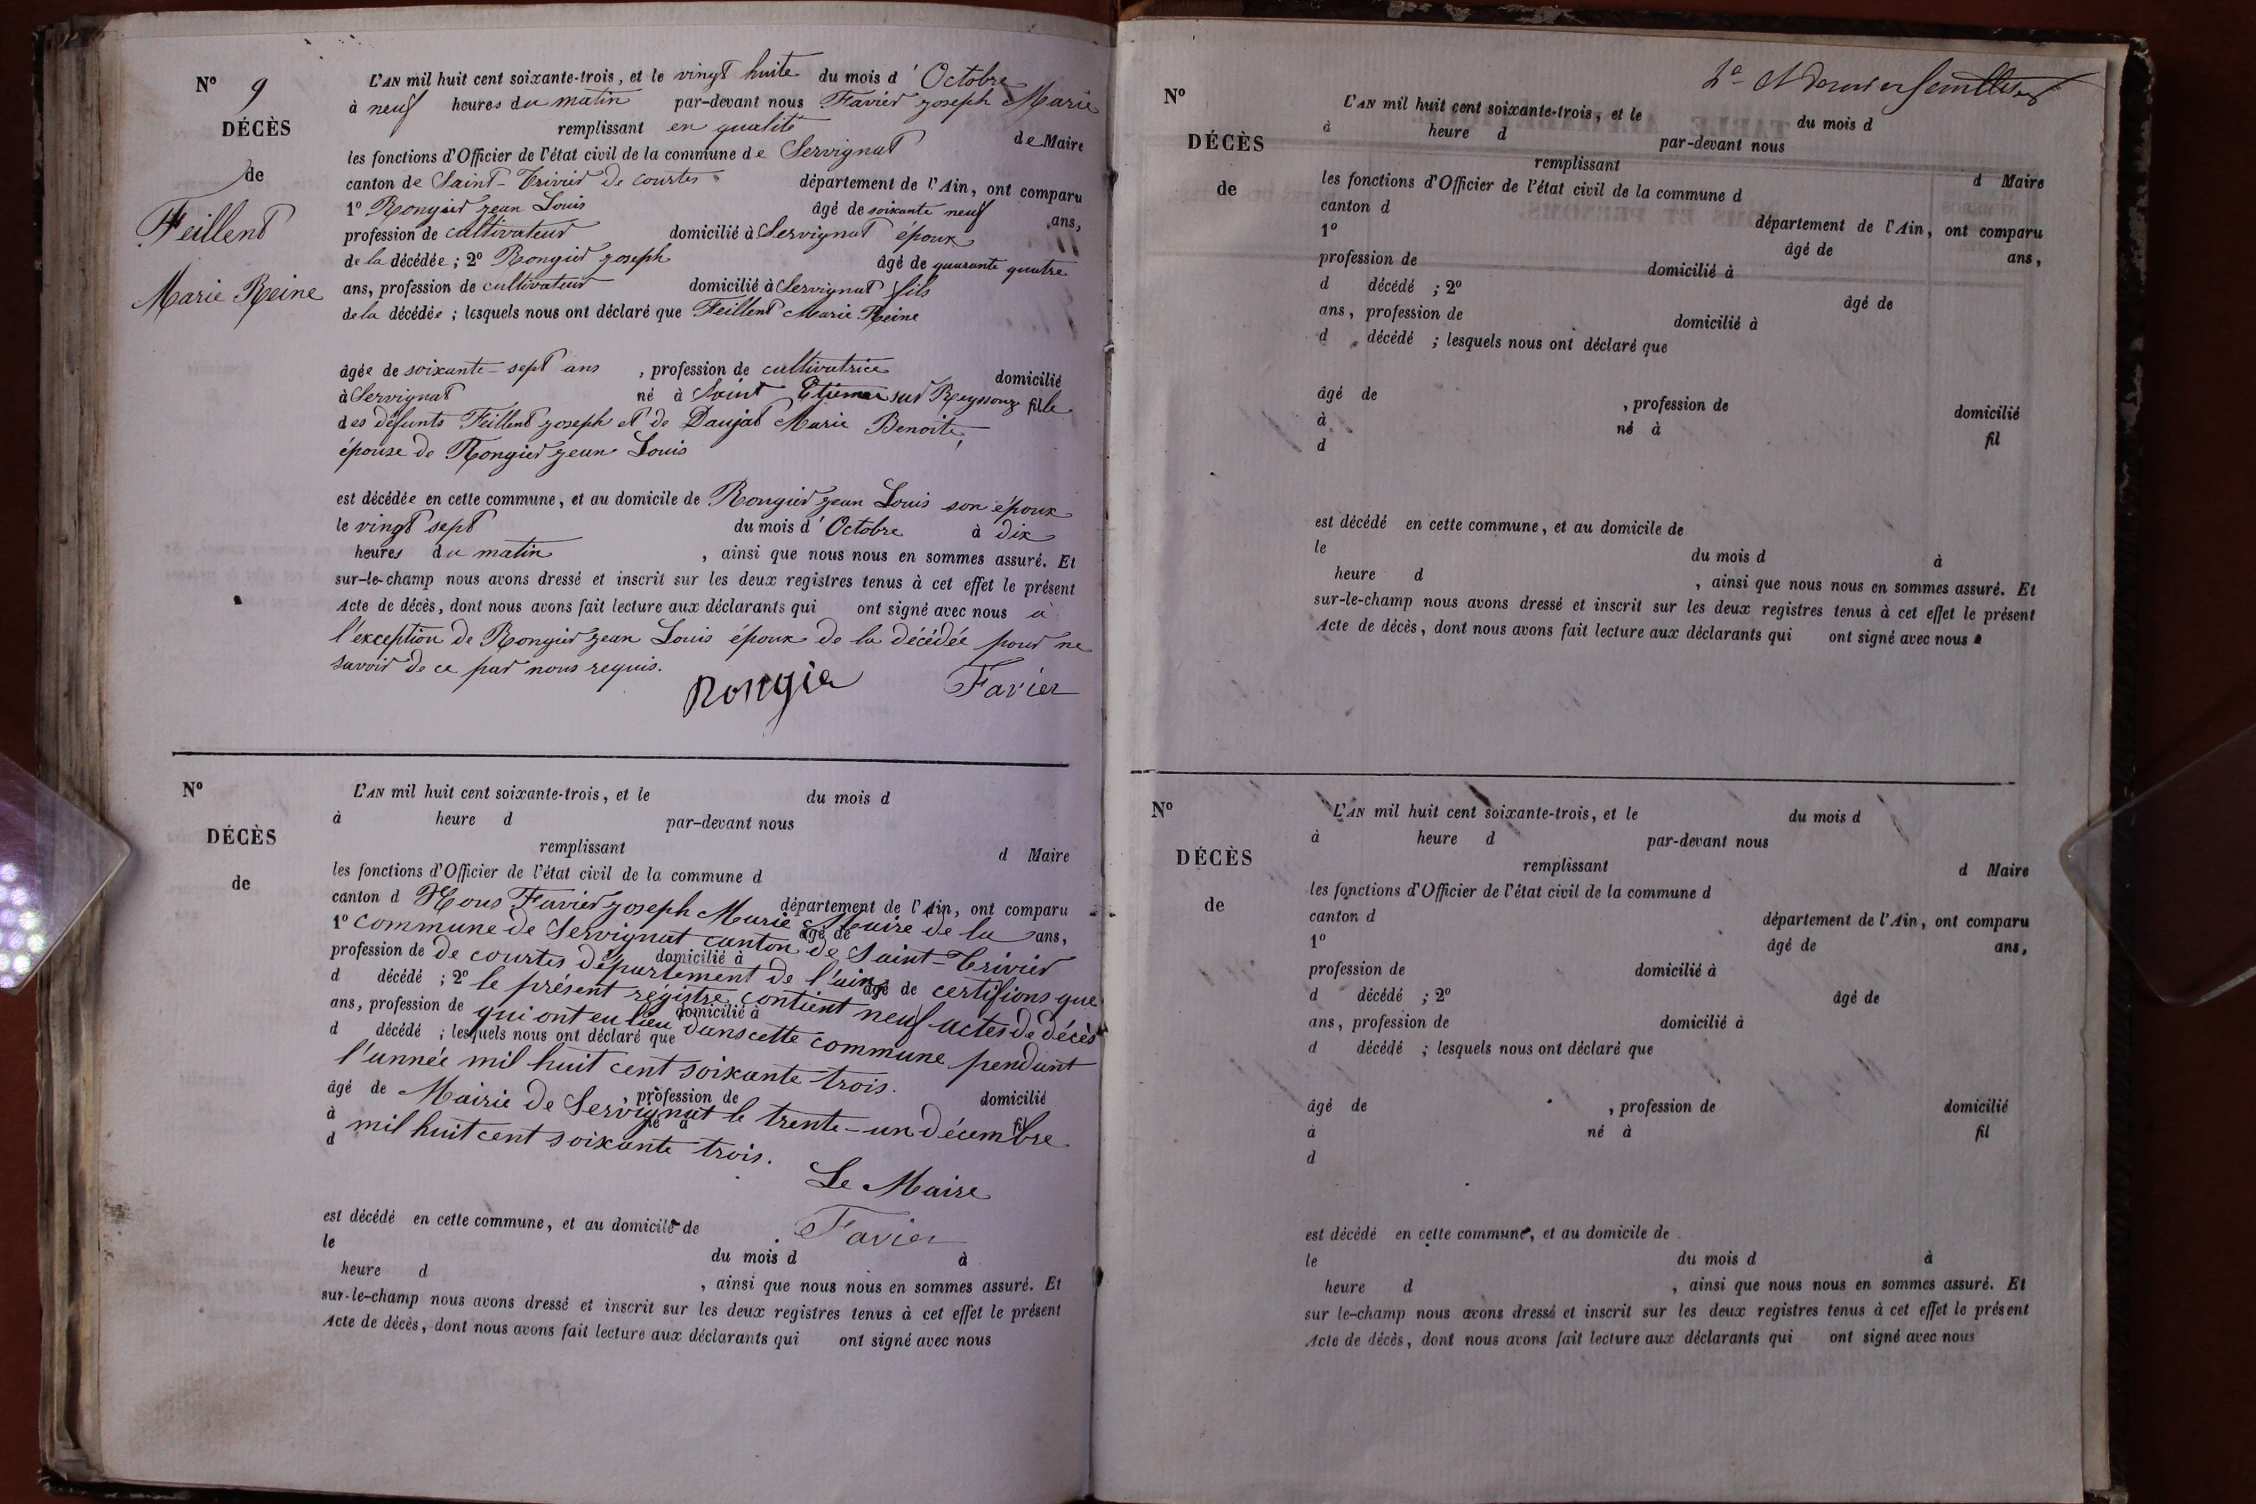 Nº 9
DÉCÈS
de
Feillent
Marie Reine
L'AN mil huit cent soixante-trois, et le vingt huite du mois d' Octobre
à neuf heures du matin par-devant nous Favier joseph Marie
remplissant en qualité de Maire
les fonctions d'Officier de l'état civil de la commune de Servignat
canton de Saint-Trivier de courtes département de l'Ain, ont comparu
1º Rongier jean Louis âgé de soixante neuf ans,
profession de cultivateur domicilié à Servignat époux
de la décédée ; 2º Rongier joseph âgé de quarante quatre
ans, profession de cultivateur domicilié à Servignat fils
de la décédée ; lesquels nous ont déclaré que Feillent Marie Reine
âgée de soixante-sept ans , profession de cultivatrice domicilié
à Servignat né à Saint Etienne sur Reyssouze fille
des défunts Feillent joseph et de Daujat Marie Benoite,
épouse de Rongier jean Louis
est décédée en cette commune, et au domicile de Rongier jean Louis son époux
le vingt sept du mois d' Octobre à dix
heures du matin , ainsi que nous nous en sommes assuré. Et
sur-le-champ nous avons dressé et inscrit sur les deux registres tenus à cet effet le présent
Acte de décès, dont nous avons fait lecture aux déclarants qui ont signé avec nous à
l'exception de Rongier jean Louis époux de la décédée pour ne
savoir de ce par nous requis.
Rongie Favier
Nº
DÉCÈS
de
L'AN mil huit cent soixante-trois, et le du mois d
à heure d par-devant nous
remplissant d Maire
les fonctions d'Officier de l'état civil de la commune d
canton d département de l'Ain, ont comparu
Nous Favier joseph Marie Maire de la
1º âgé de ans,
commune de Servignat canton de Saint-Trivier
profession de domicilié à
de courtes département de l'ain
d décédé ; 2º âgé de
certifions que
le présent régistre contient neuf actes de décès
ans, profession de domicilié à
qui ont eu lieu dans cette commune pendant
d décédé ; lesquels nous ont déclaré que
l'année mil huit cent soixante trois.
âgé de , profession de domicilié
Mairie de Servignat le trente-un décembre
à né à fil
mil huit cent soixante trois.
d
Le Maire
Favier
est décédé en cette commune, et au domicile de
le du mois d à
heure d , ainsi que nous nous en sommes assuré. Et
sur-le-champ nous avons dressé et inscrit sur les deux registres tenus à cet effet le présent
Acte de décès, dont nous avons fait lecture aux déclarants qui ont signé avec nous
2e et dernier
Nº
DÉCÈS
de
L'AN mil huit cent soixante-trois, et le du mois d
à heure d par-devant nous
remplissant d Maire
les fonctions d'Officier de l'état civil de la commune d
canton d département de l'Ain, ont comparu
1º âgé de ans,
profession de domicilié à
d décédé ; 2º âgé de
ans, profession de domicilié à
d décédé ; lesquels nous ont déclaré que
âgé de , profession de domicilié
à né à fil
d
est décédé en cette commune, et au domicile de
le du mois d à
heure d , ainsi que nous nous en sommes assuré. Et
sur-le-champ nous avons dressé et inscrit sur les deux registres tenus à cet effet le présent
Acte de décès, dont nous avons fait lecture aux déclarants qui ont signé avec nous
Nº
DÉCÈS
de
L'AN mil huit cent soixante-trois, et le du mois d
à heure d par-devant nous
remplissant d Maire
les fonctions d'Officier de l'état civil de la commune d
canton d département de l'Ain, ont comparu
1º âgé de ans,
profession de domicilié à
d décédé ; 2º âgé de
ans, profession de domicilié à
d décédé ; lesquels nous ont déclaré que
âgé de , profession de domicilié
à né à fil
d
est décédé en cette commune, et au domicile de
le du mois d à
heure d , ainsi que nous nous en sommes assuré. Et
sur le-champ nous avons dressé et inscrit sur les deux registres tenus à cet effet le présent
Acte de décès, dont nous avons fait lecture aux déclarants qui ont signé avec nous